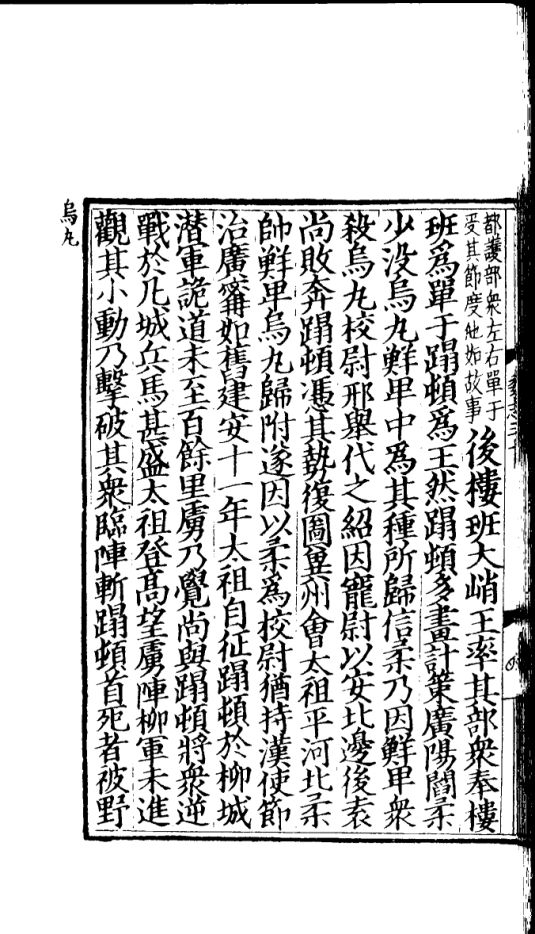 都護部衆左右單于
受其節度他如故事
後樓班大峭王率其部衆奉樓
班爲單于蹋頓爲王然蹋頓多畫計策廣陽閻柔
少没烏丸鮮卑中爲其種所歸信柔乃因鮮卑衆
殺烏丸校尉邢舉代之紹因寵尉以安北邊後袁
尚敗奔蹋頓憑其埶復圖兾州會太祖平河北柔
帥鮮卑烏丸歸附遂因以柔爲校尉猶持漢使節
治廣甯如舊建安十一年太祖自征蹋頓於柳城
潜軍詭道未至百餘里虜乃覺尚與蹋頓將衆逆
戰於凡城兵馬甚盛太祖登髙望虜陣柳軍未進
觀其小動乃擊破其衆臨陣斬蹋頓首死者被野
烏丸